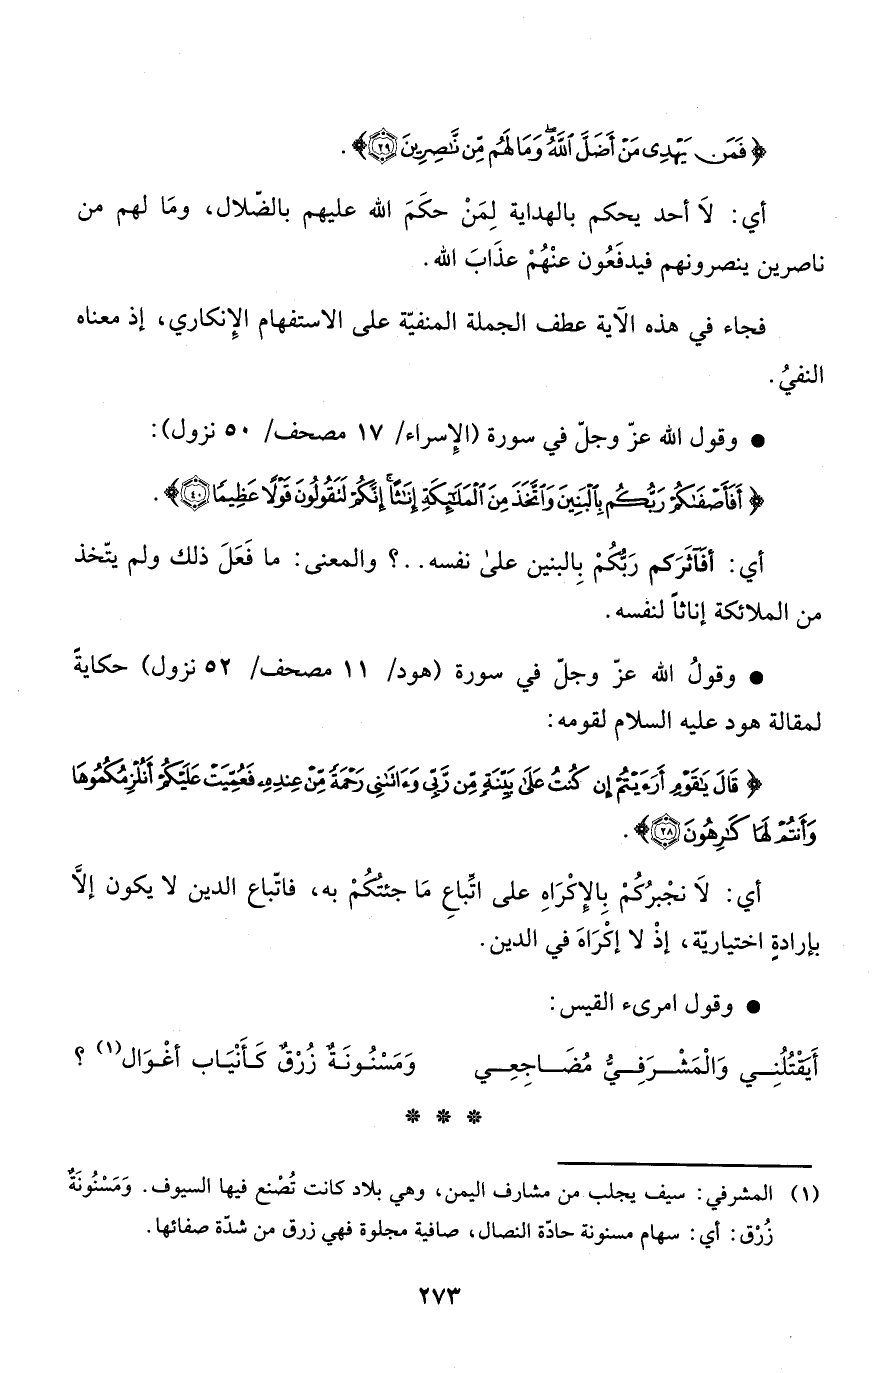 ﴿ فَمَن يَهْدِى مَنْ أَضَلَّ ٱللَّهُ ۖ وَمَا لَهُم مِّن نَّٰصِرِينَ ﴿٢٩﴾﴾ .
أي: لاَ أحد يحكم بالهداية لِمَنْ حكَمَ الله عليهم بالضّلال، ومَا لهم من
ناصرين ينصرونهم فيدفَعُون عنْهُمْ عذَابَ الله.
فجاء في هذه الآية عطف الجملة المنفيّة على الاستفهام الإنكاري، إذ معناه
النفيُ.
● وقول الله عزّ وجلّ في سورة (الإسراء/ ١٧ مصحف/ ٥٠ نزول):
﴿ أَفَأَصْفَىٰكُمْ رَبُّكُم بِٱلْبَنِينَ وَٱتَّخَذَ مِنَ ٱلْمَلَٰٓئِكَةِ إِنَٰثًا ۚ إِنَّكُمْ لَتَقُولُونَ قَوْلًا عَظِيمًا ﴿٤٠﴾﴾ .
أي: أفَآثَرَكم رَبُّكُمْ بِالبنين علىٰ نفسه..؟ والمعنى: ما فَعَلَ ذلك ولم يتّخذ
من الملائكة إناثاً لنفسه.
● وقولُ الله عزّ وجلّ في سورة (هود/ ١١ مصحف/ ٥٢ نزول) حكايةً
لمقالة هود عليه السلام لقومه:
﴿ قَالَ يَٰقَوْمِ أَرَءَيْتُمْ إِن كُنتُ عَلَىٰ بَيِّنَةٍ مِّن رَّبِّى وَءَاتَىٰنِى رَحْمَةً مِّنْ عِندِهِۦ فَعُمِّيَتْ عَلَيْكُمْ أَنُلْزِمُكُمُوهَا
وَأَنتُمْ لَهَا كَٰرِهُونَ ﴿٢٨﴾﴾ .
أي: لاَ نجْبرُكُمْ بِالإكْرَاهِ على اتِّباعِ مَا جئتُكُمْ به، فاتّباع الدين لا يكون إلاَّ
بإرادةٍ اختياريّة، إذْ لا إكْرَاهَ في الدين.
● وقول امرىء القيس:
أَيَقْتُلُنِي وَالْمَشْرَفِيُّ مُضَاجِعِي وَمَسْنُونَةٌ زُرْقٌ كَأَنْيَاب أغْوَال(١) ؟
* * *
(١) المشرفي: سيف يجلب من مشارف اليمن، وهي بلاد كانت تُصْنع فيها السيوف. وَمَسْنُونَةٌ
زُرْق: أي: سهام مسنونة حادّة النصال، صافية مجلوة فهي زرق من شدّة صفائها.
٢٧٣